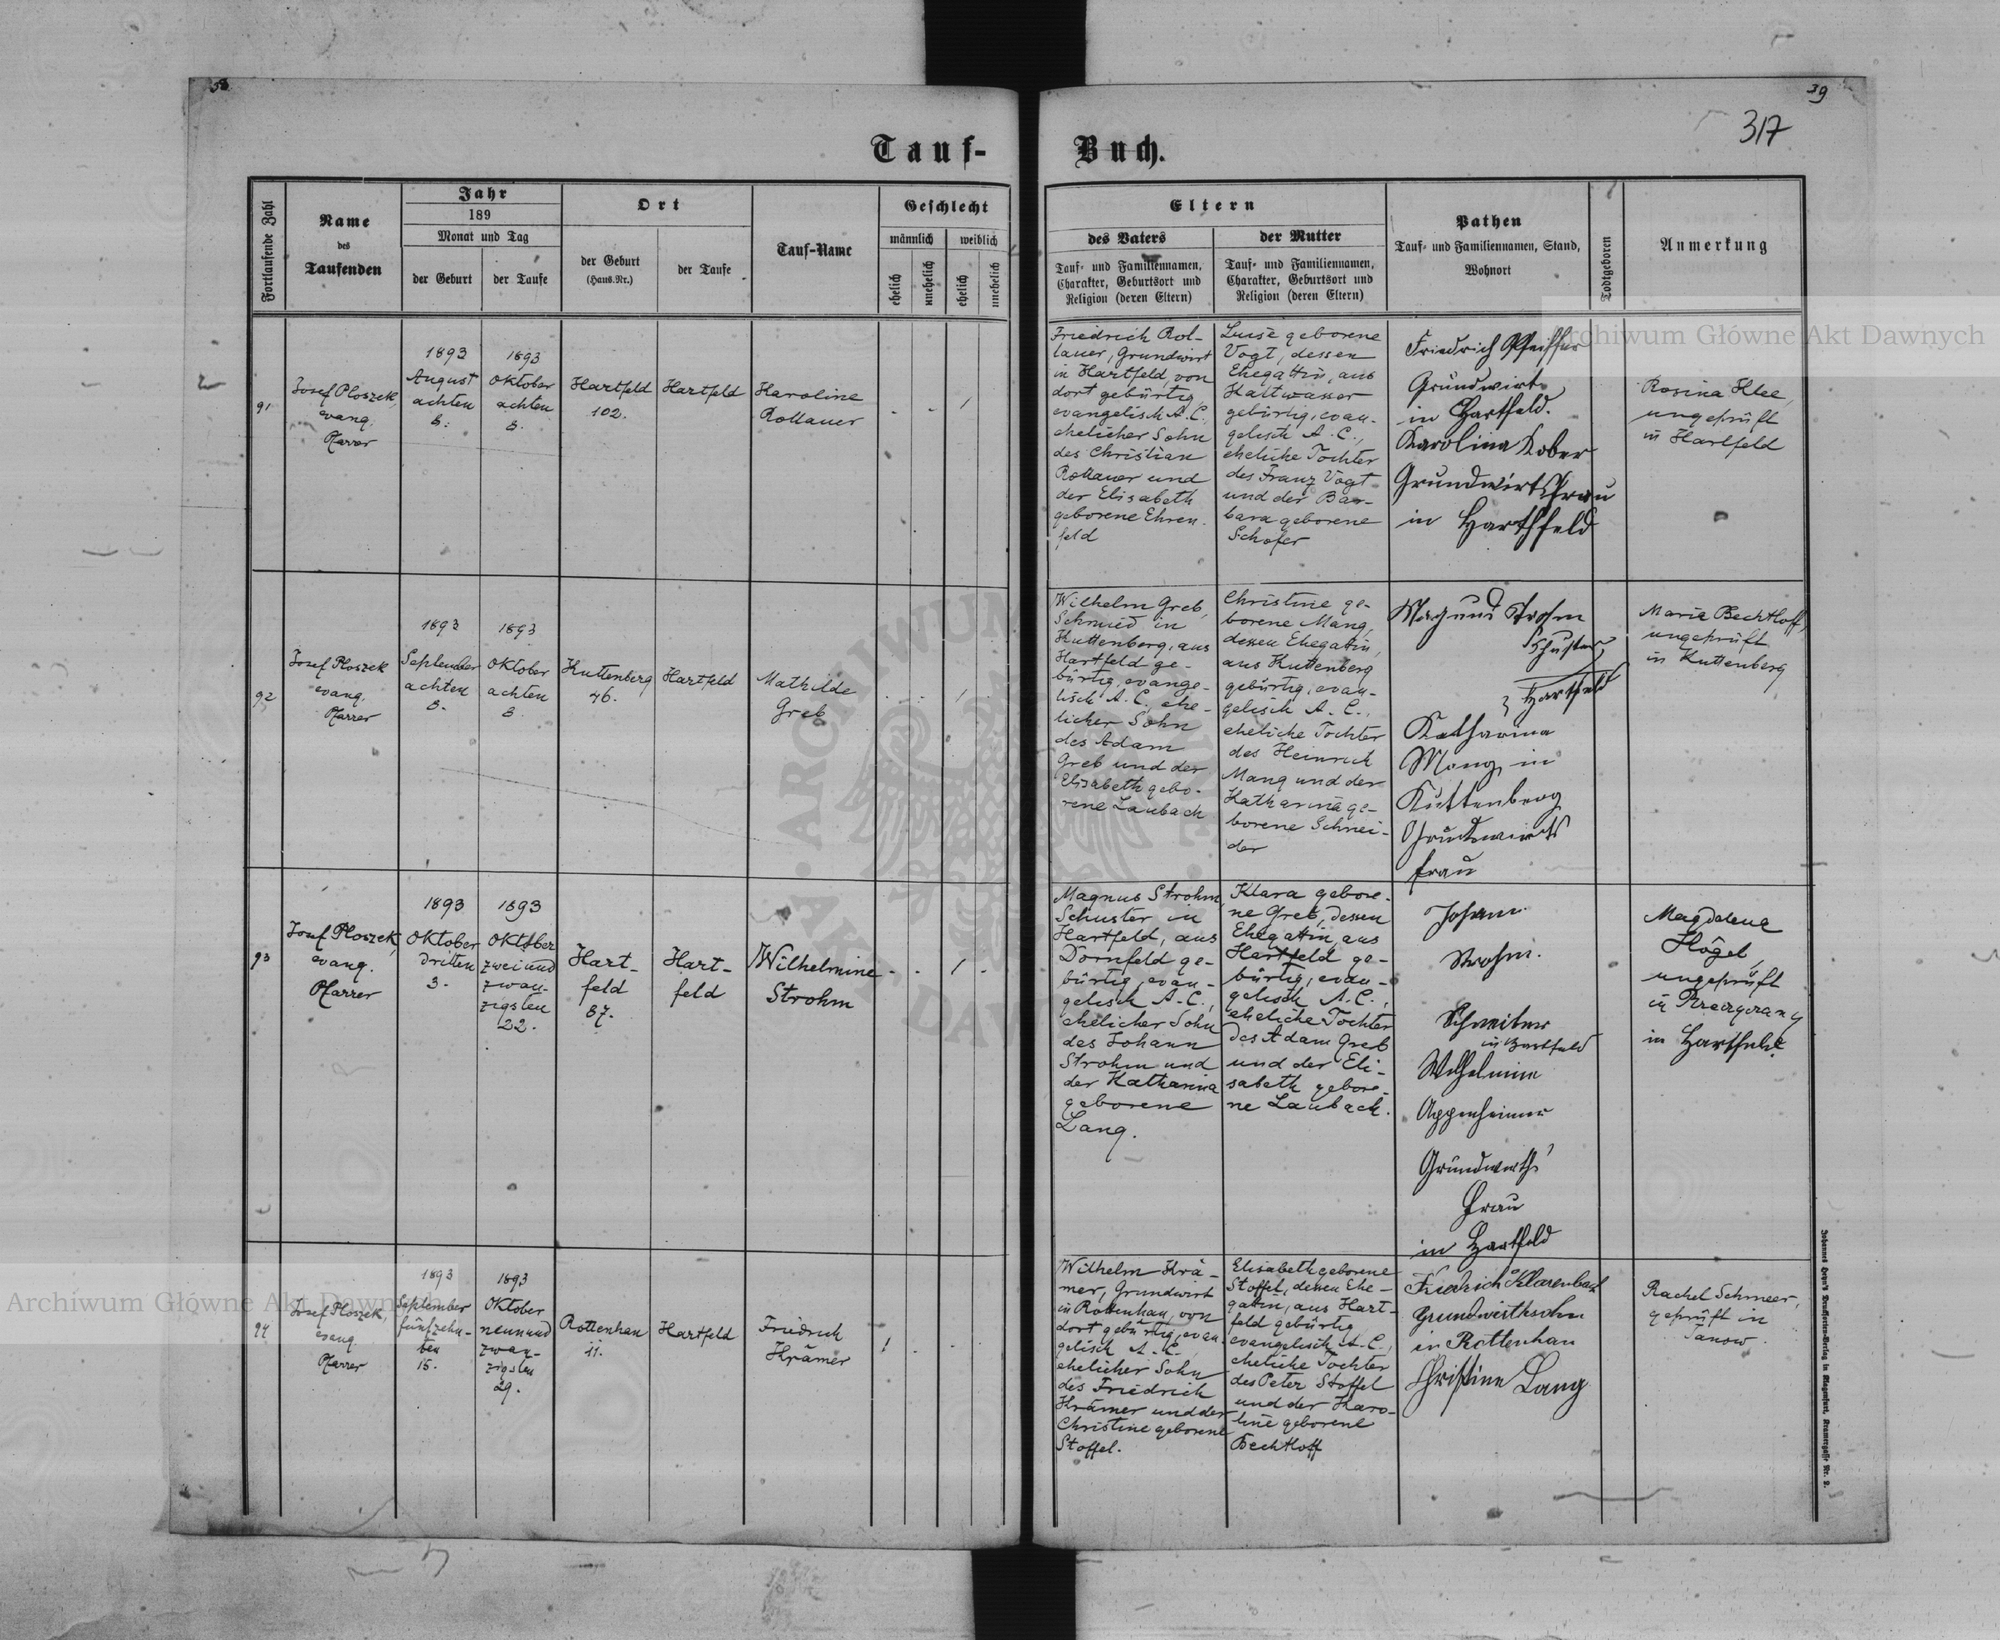 38
39
317
Tauf-
Buch.
Fortlaufende Zahl
Name
des
Taufenden
Jahr
189
Monat und Tag
der Geburt
der Taufe
Ort
der Geburt
(Haus-Nr.)
der Taufe
Tauf-Name
Geschlecht
männlich
weiblich
ehelich
unehelich
ehelich
unehelich
Eltern
des Vaters
Tauf- und Familiennamen,
Charakter, Geburtsort und
Religion (deren Eltern)
der Mutter
Tauf- und Familiennamen,
Charakter, Geburtsort und
Religion (deren Eltern)
Pathen
Tauf- und Familiennamen, Stand,
Wohnort
Todtgeboren
Anmerkung
91
Josef Ploszek,
evang.
Pfarrer
1893
August
achten
8.
1893
Oktober
achten
8.
Hartfeld
102.
Hartfeld
Karoline
Rollauer
- - 1
Friedrich Rol-
lauer, Grundwirt
in Hartfeld, von
dort gebürtig,
evangelisch A.C.,
ehelicher Sohn
des Christian
Rollauer und
der Elisabeth
geborene Ehren-
feld
Luise geborene
Vogt, dessen
Ehegattin, aus
Kaltwasser
gebürtig, evan-
gelisch A.C.,
eheliche Tochter
des Franz Vogt
und der Bar-
bara geborene
Schofer
Friedrich Pfeiffer
Grundwirt
in Hartfeld.
Karolina Kober
Grundwirtsfrau
in Harthfeld
Rosina Klee,
ungeprüft
in Hartfeld
92
Josef Ploszek
evang.
Pfarrer
1893
September
achten
8.
1893
Oktober
achten
8.
Kuttenberg
46.
Hartfeld
Mathilde
Greb
- - 1 -
Wilhelm Greb,
Schmied in
Kuttenberg, aus
Hartfeld ge-
bürtig, evange-
lisch A.C., ehe-
licher Sohn
des Adam
Greb und der
Elisabeth gebo-
rene Laubach
Christine ge-
borene Mang,
dessen Ehegattin,
aus Kuttenberg
gebürtig, evan-
gelisch A.C.,
eheliche Tochter
des Heinrich
Mang und der
Katharina ge-
borene Schnei-
der
Magnus Strohm
Schuster
Hartfeld
Katharina
Mang in
Kuttenberg
Grundwirts
frau
Marie Bechtloff,
ungeprüft
in Kuttenberg
93
Josef Ploszek,
evang.
Pfarrer
1893
Oktober
dritten
3.
1893
Oktober
zweiund
zwan-
zigsten
22.
Hart-
feld
87.
Hart-
feld
Wilhelmine
Strohm
- - 1 -
Magnus Strohm,
Schuster in
Hartfeld, aus
Dornfeld ge-
bürtig, evan-
gelisch A.C.,
ehelicher Sohn
des Johann
Strohm und
der Katharina
geborene
Lang.
Klara gebore-
ne Greb, dessen
Ehegattin, aus
Hartfeld ge-
bürtig, evan-
gelisch A.C.,
eheliche Tochter
des Adam Greb
und der Eli-
sabeth gebore-
ne Laubach.
Johann
Strohm.
in Hartfeld
Wilhelmine
Oppenheimer
Grundwirths
Frau
in Hartfeld
Magdalena
Högel,
ungeprüft
in Hartfeld
94
Josef Ploszek,
evang.
Pfarrer
1893
September
fünfzehn-
ten
15.
1893
Oktober
neunund
zwan-
zigsten
29.
Rottenhan
11.
Hartfeld
Friedrich
Krämer
1 - - -
Wilhelm Krä-
mer, Grundwirt
in Rottenhan, von
dort gebürtig, evan-
gelisch A.C.,
ehelicher Sohn
des Friedrich
Krämer und der
Christine geborene
Stoffel.
Elisabeth geborene
Stoffel, dessen Ehe-
gattin, aus Hart-
feld gebürtig,
evangelisch A.C.,
eheliche Tochter
des Peter Stoffel
und der Karo-
line geborene
Bechtloff
Friedrich Klarenbach
Grundwirthsohn
in Rottenhan
Christine Lang
Rachel Schmeer,
geprüft in
Janow.
Archiwum Główne Akt Dawnych
Archiwum Główne Akt Dawnych